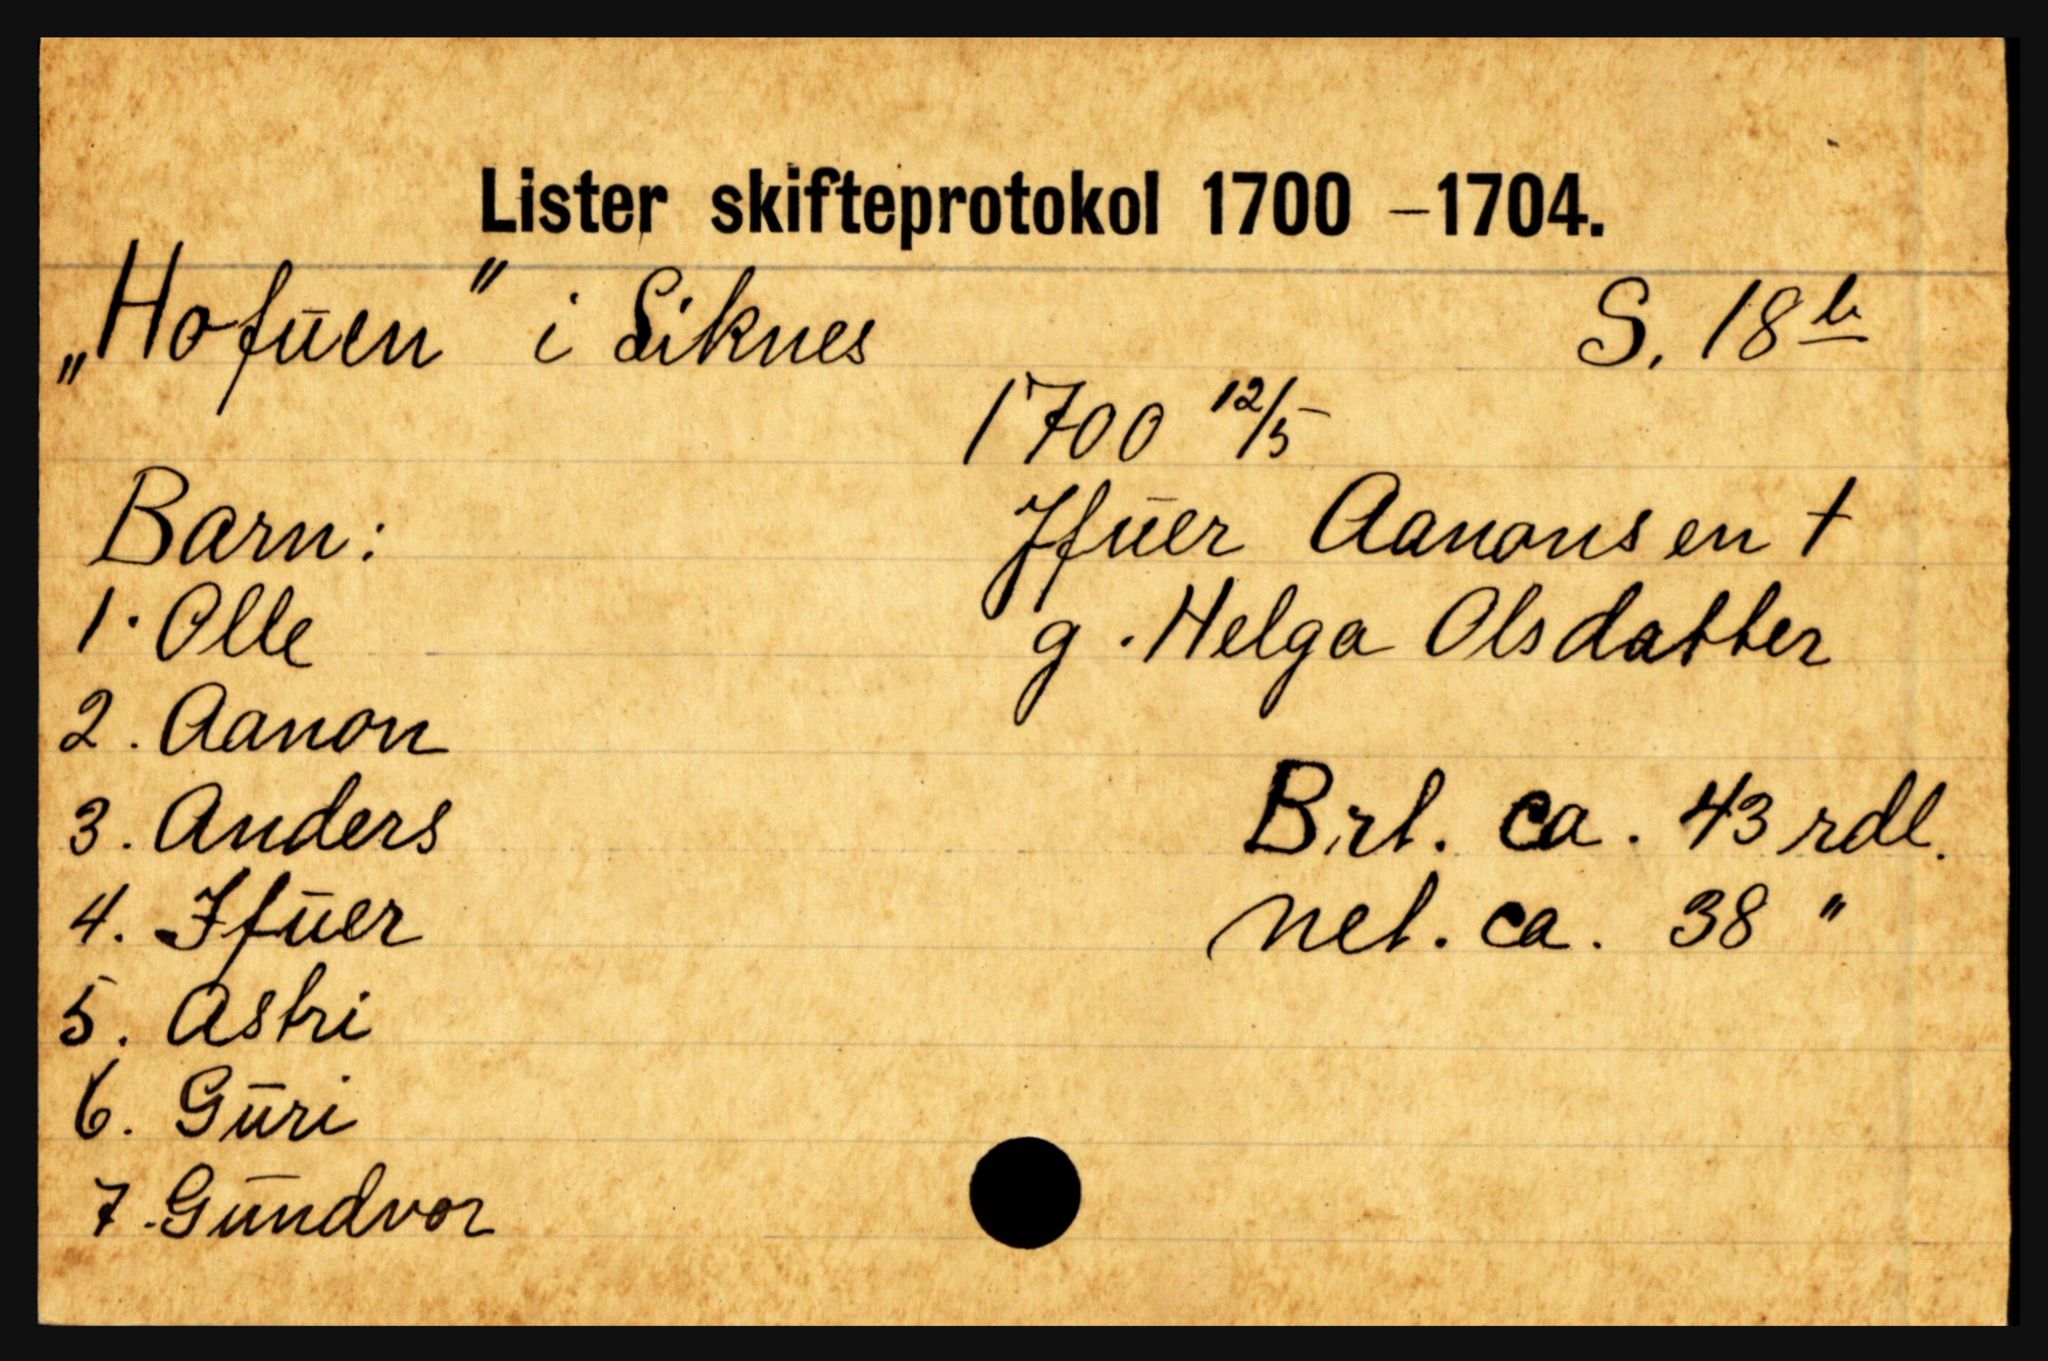 Lister skifteprotokol 1700 –1704.
„Hofūen" i Siknes S. 18 b
1700 12/5
Barn: Ifūer Aanonsen †
1. Olle g. Helga Olsdatter
2. Aanon
3. Anders Brt. ca. 43 rdl.
4. Ifūer net. ca. 38 "
5. Astri
6. Gūri
7. Gūndvor